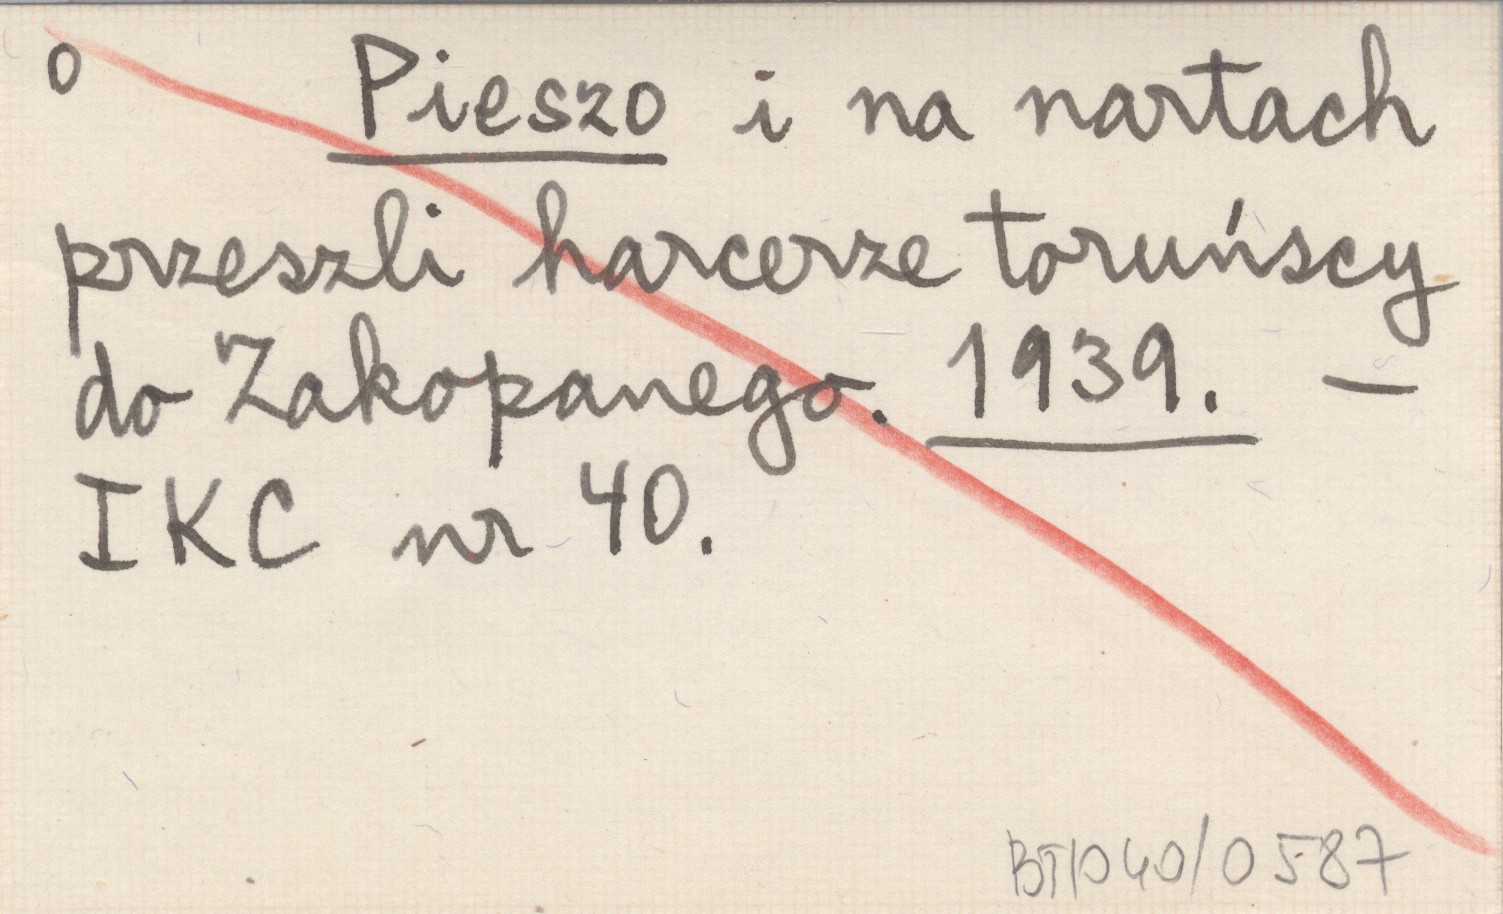 o Pieszo i na nartach
przeszli harcerze toruńscy
do Zakopanego. 1939. —
IKC nr 40.
BT/040/0587